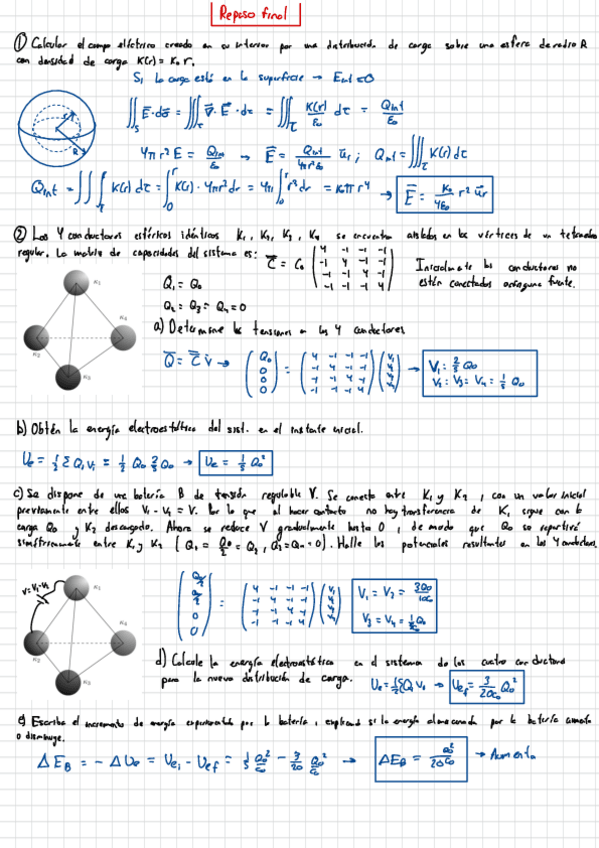 Repaso final
① Calcular el campo eléctrico creado en su interior por una distribución de carga sobre una esfera de radio R
con densidad de carga K(r) = K₀ r.
Si la carga está en la superficie → E_int = 0
∬_S E⃗·dσ⃗ = ∭_τ ∇⃗·E⃗·dτ = ∭_τ K(r)/ε₀ dτ = Q_int/ε₀
4πr²E = Q_int/ε₀ → E⃗ = Q_int/4πr²ε₀ u⃗r ; Q_int = ∭_τ K(r) dτ
Q_int = ∭_τ K(r) dτ = ∫₀^r K(r)·4πr²dr = 4π∫₀^r r³dr = K₀πr⁴ → E⃗ = K₀/4ε₀ r² u⃗r
② Los 4 conductores esféricos idénticos K₁, K₂, K₃, K₄ se encuentran aislados en los vértices de un tetraedro
regular. La matriz de capacidades del sistema es: C = C₀ (4 -1 -1 -1 / -1 4 -1 -1 / -1 -1 4 -1 / -1 -1 -1 4) Inicialmente los conductores no
están conectados a ninguna fuente.
Q₁ = Q₀
Q₂ = Q₃ = Q₄ = 0
a) Determine las tensiones en los 4 conductores
Q = C V → (Q₀ 0 0 0) = (4 -1 -1 -1 / -1 4 -1 -1 / -1 -1 4 -1 / -1 -1 -1 4) (V₁ V₂ V₃ V₄) → V₁ = 2/5 Q₀
V₂ = V₃ = V₄ = 1/5 Q₀
b) Obtén la energía electroestática del sist. en el instante inicial.
Ue = ½ Σ Qi Vi = ½ Q₀ 2/5 Q₀ → Ue = 1/5 Q₀²
c) Se dispone de una batería B de tensión regulable V. Se conecta entre K₁ y K₂, con un valor inicial
previamente entre ellos V₁ - V₂ = V. Por lo que al hacer contacto no hay transferencia de K₁ sigue con la
carga Q₀ y K₂ descargado. Ahora se reduce V gradualmente hasta 0, de modo que Q₀ se repartirá
simétricamente entre K₁ y K₂ (Q₁ = Q₀/2 = Q₂, Q₃ = Q₄ = 0). Halle los potenciales resultantes en los 4 conductores.
V = V₁ - V₂
(Q₀/2 Q₀/2 0 0) = (4 -1 -1 -1 / -1 4 -1 -1 / -1 -1 4 -1 / -1 -1 -1 4) (V₁ V₂ V₃ V₄) V₁ = V₂ = 3Q₀/10C₀
V₃ = V₄ = 1/5 Q₀/C₀
d) Calcule la energía electroestática en el sistema de los cuatro conductores
para la nueva distribución de carga. Ue = ½ΣQi Vi → Uef = 3/20C₀ Q₀²
e) Escriba el incremento de energía experimentado por la batería, explicando si la energía almacenada por la batería aumenta
o disminuye.
ΔE_B = -ΔUe = Uei - Uef = 1/5 Q₀²/C₀ - 3/20 Q₀²/C₀ → ΔE_B = Q₀²/20C₀ → Aumenta